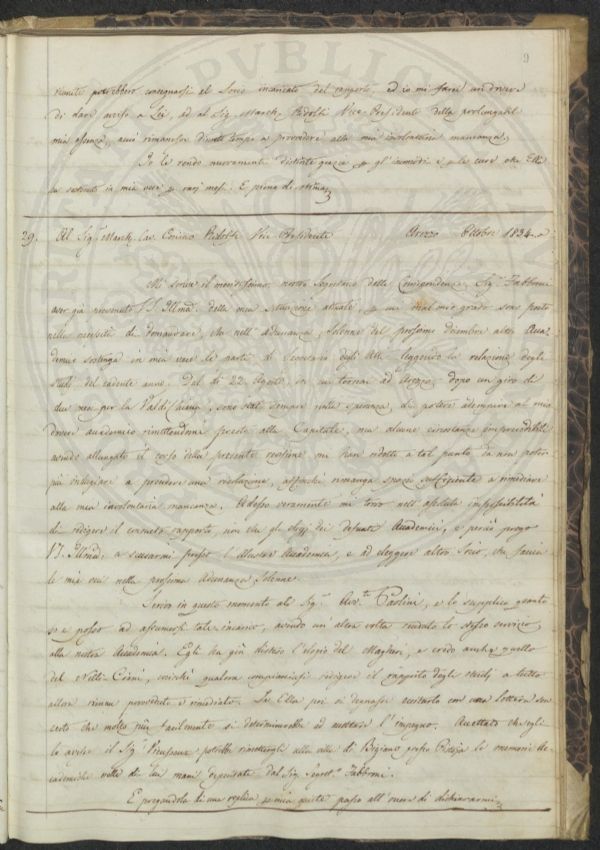 9
riunite potrebbero consegnarsi al Socio incaricato del rapporto, ed io mi farei un dovere
di dare avviso a Lei, ed al Sig. March. Ridolfi Vice-Presidente della prolungabil
mia assenza, a rimanessse tempo a provvedere alla mia involontaria mancanza.
Io Le rendo nuovamente distinte grazie gl' incomodi e le cure che Ella
ha sostenute in mia vece varj mesi. E pieno di stima
29. Al Sig.r March. Cav. Cosimo Ridolfi Vice Presidente Arezzo Ottobre 1834.
Mi scrive il nostro Segretario delle Corrispondenze Sig.r Fabbroni
aver già prevenuto V.S. Illma. della mia situazione attuale, cui mal mio grado sono posto
nella necessità di domandare, che nell' Adunanza Solenne del prossimo Dicembre altro Acca-
demico sostenga in mia vece le parti di Segretario degli Atti leggendo la relazione degli
studj del cadente anno. Dal dì 22. Agosto, in cui tornai ad Arezzo, dopo un giro di
due mesi per la Valdichiana, sono stato sempre nella speranza di potere adempire al mio
dovere accademico rimettendomi presto alla Capitale, ma alcune circostanze imprevedibili
avendo allungato il corso della presente mi han ridotto a tal punto da non poter
più indugiare a prendere una risoluzione, affinchè rimanga spazio sufficiente a rimediare
alla mia involontaria mancanza. Adesso veramente mi trovo nell' assoluta impossibilità
di redigere il consueto rapporto, non che gli elogj dei defunti Accademici, e perciò prego
V.S. Illma. a scusarmi presso l' illustre Accademia, e ad eleggere altro Socio, che faccia
le mie veci nella prossima Adunanza Solenne.
Scrivo in questo momento al Sig.r Avv.to Paolini, e lo supplico quanto
so e posso ad assumersi tale incarico, avendo un' altra volta renduto lo stesso servizio
alla nostra Accademia. Egli ha già disteso l' elogio del Magheri, e credo anche quello
del Nelli-Ciani, cosicchè qualora compiacciasi redigere il rapporto degli studj a tutto
allora rimane provveduto e rimediato. Se Ella poi si degnasse esortarlo con una lettera son
certo che molto più facilmente si determinerebbe ad accettare l' impegno. Accettato ch' egli
lo avesse il Sig. potrebbe rimettergli alla villa di Bigiano presso Pistoja le memorie Ac-
cademiche nelle di lui mani depositate dal Sig. Segret.o Fabbroni.
E pregandola di una replica mia quiete passo all' onore di dichiararmi